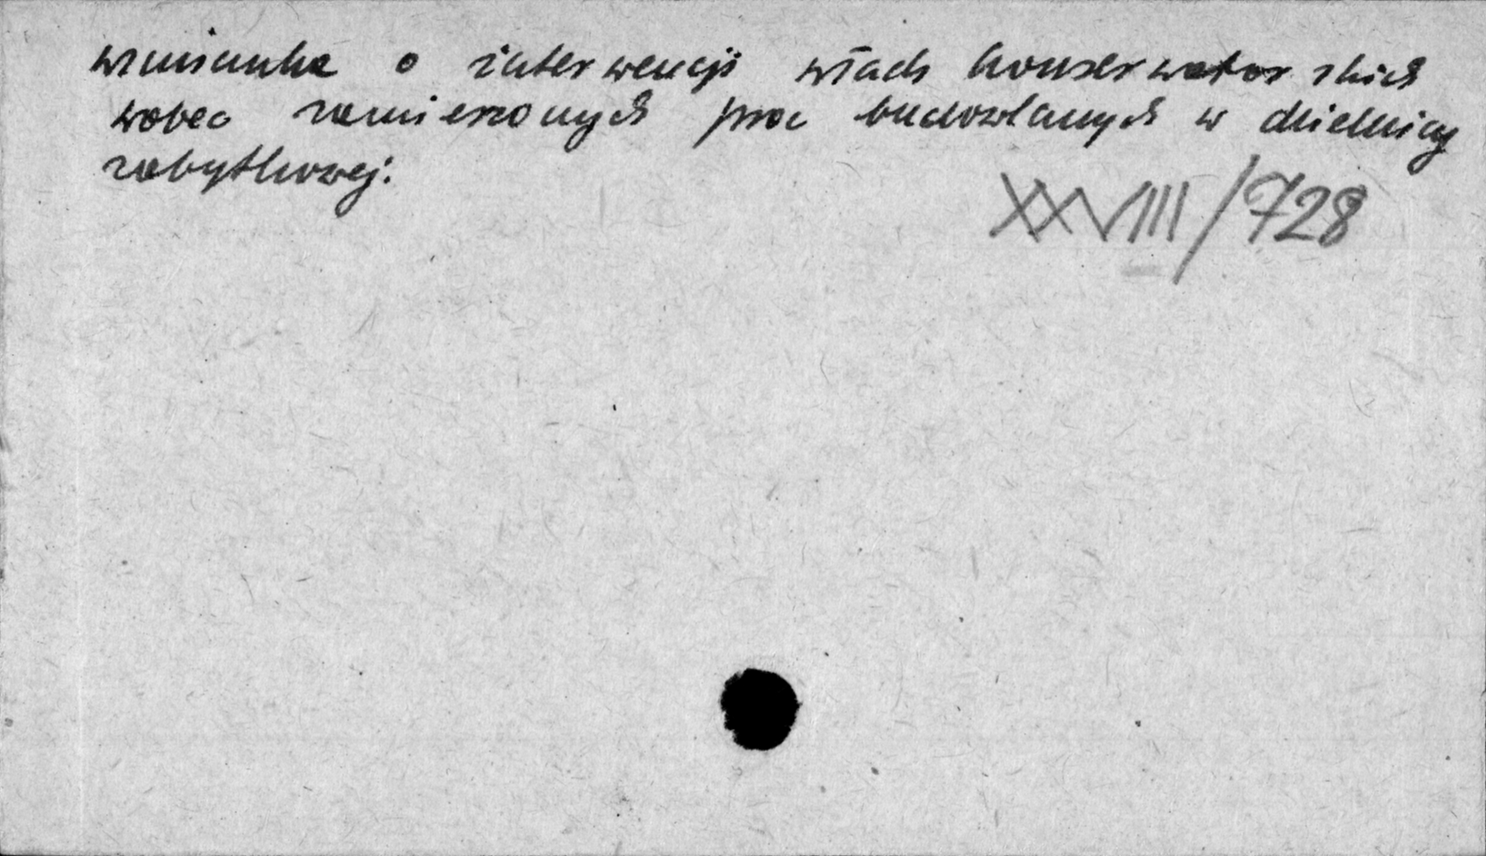 wzmianka o interwencji władz konserwatorskich
wobec zamierzonych prac budowlanych w dzielnicy
zabytkowej:
XXVIII/728